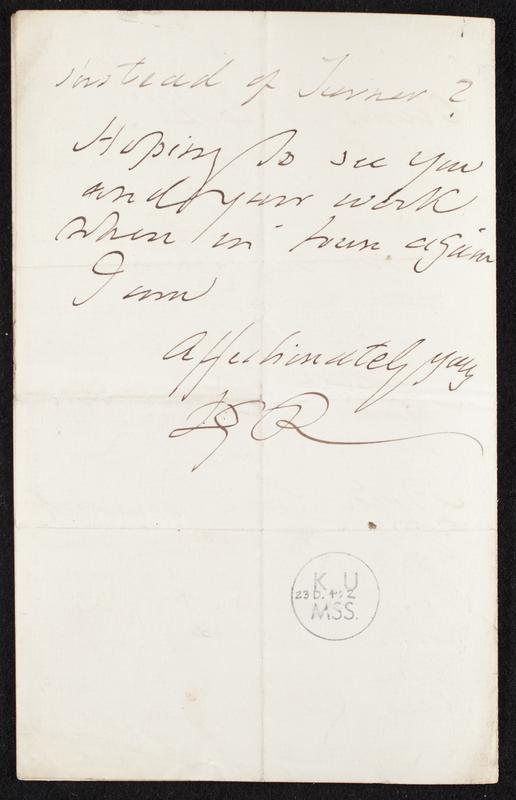 instead of Turner?
Hoping to see you
and your work
when in town again
I am
Affectionately yours
DGR
K U
23 D. 4:2
MSS.